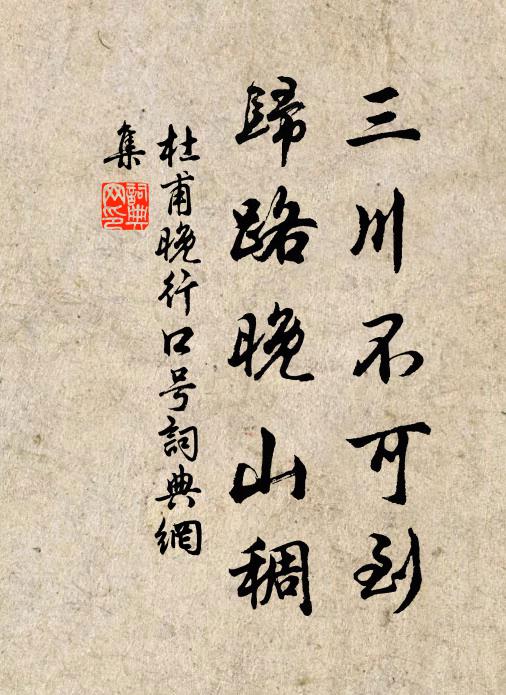 三川不可到
歸路晚山稠
杜甫晚行口号詞典網
集
詞典
网印